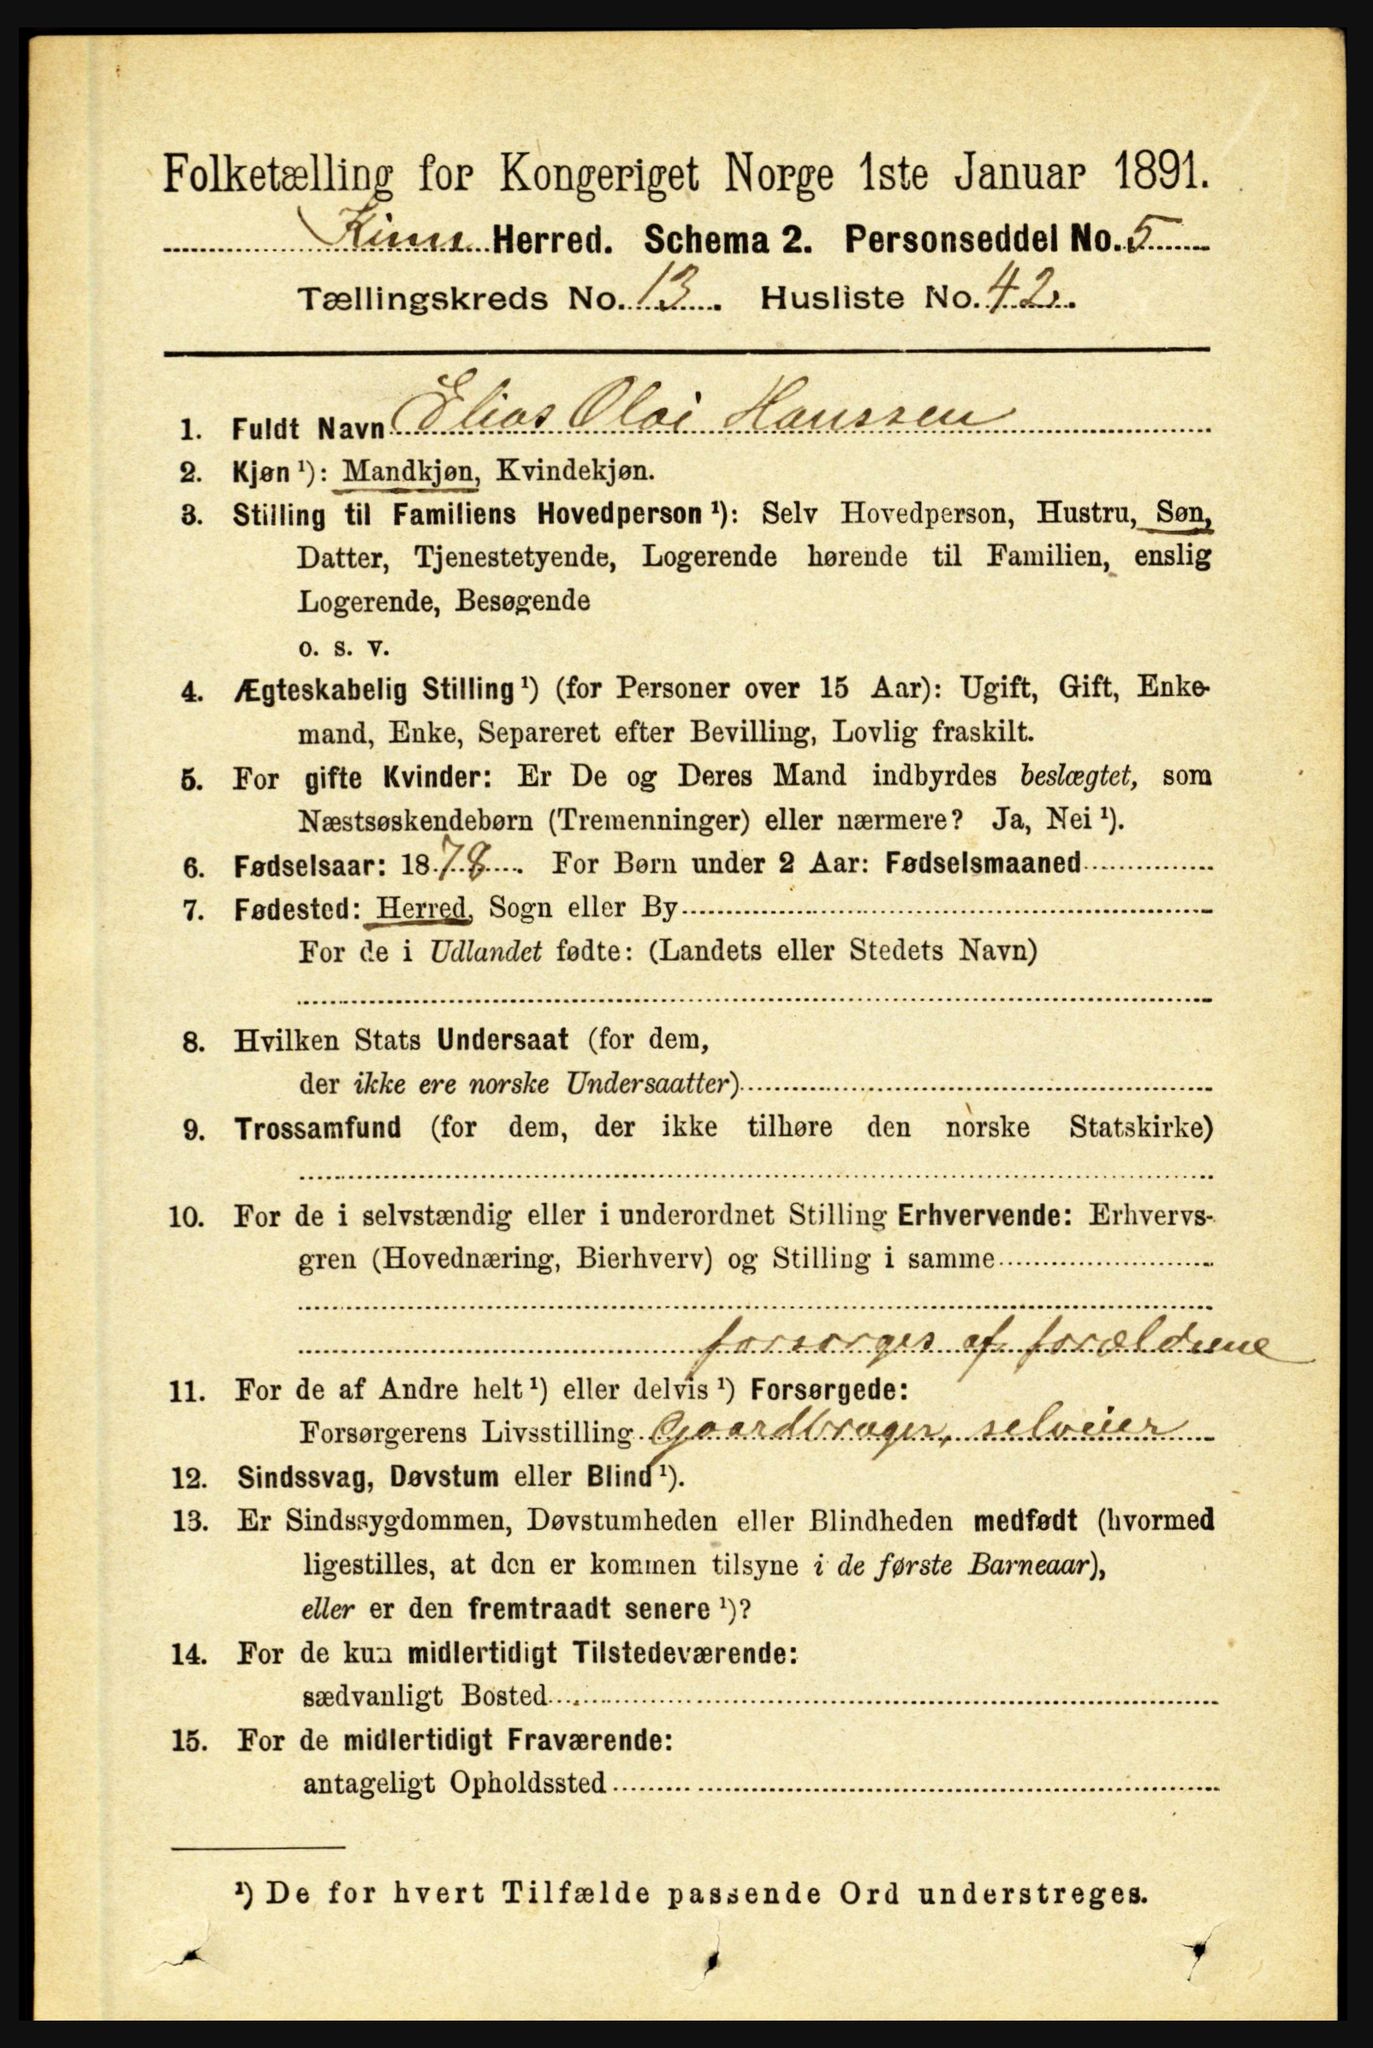 Folketælling for Kongeriget Norge 1ste Januar 1891.
Kinn Herred. Schema 2. Personseddel No. 5
Tællingskreds No. 13. Husliste No. 42.
1. Fuldt Navn Elias Olai Hanssen
2. Kjøn¹): Mandkjøn, Kvindekjøn.
3. Stilling til Familiens Hovedperson¹): Selv Hovedperson, Hustru, Søn,
Datter, Tjenestetyende, Logerende hørende til Familien, enslig
Logerende, Besøgende
o. s. v.
4. Ægteskabelig Stilling¹) (for Personer over 15 Aar): Ugift, Gift, Enke-
mand, Enke, Separeret efter Bevilling, Lovlig fraskilt.
5. For gifte Kvinder: Er De og Deres Mand indbyrdes beslægtet, som
Næstsøskendebørn (Tremenninger) eller nærmere? Ja, Nei¹).
6. Fødselsaar: 1878. For Børn under 2 Aar: Fødselsmaaned
7. Fødested: Herred, Sogn eller By
For de i Udlandet fødte: (Landets eller Stedets Navn)
8. Hvilken Stats Undersaat (for dem,
der ikke ere norske Undersaatter)
9. Trossamfund (for dem, der ikke tilhøre den norske Statskirke)
10. For de i selvstændig eller i underordnet Stilling Erhvervende: Erhvervs-
gren (Hovednæring, Bierhverv) og Stilling i samme
forsørges af forældrene
11. For de af Andre helt¹) eller delvis¹) Forsørgede:
Forsørgerens Livsstilling Gaardbruger, selveier
12. Sindssvag, Døvstum eller Blind¹).
13. Er Sindssygdommen, Døvstumheden eller Blindheden medfødt (hvormed
ligestilles, at den er kommen tilsyne i de første Barneaar),
eller er den fremtraadt senere¹)?
14. For de kun midlertidigt Tilstedeværende:
sædvanligt Bosted
15. For de midlertidigt Fraværende:
antageligt Opholdssted
¹) De for hvert Tilfælde passende Ord understreges.